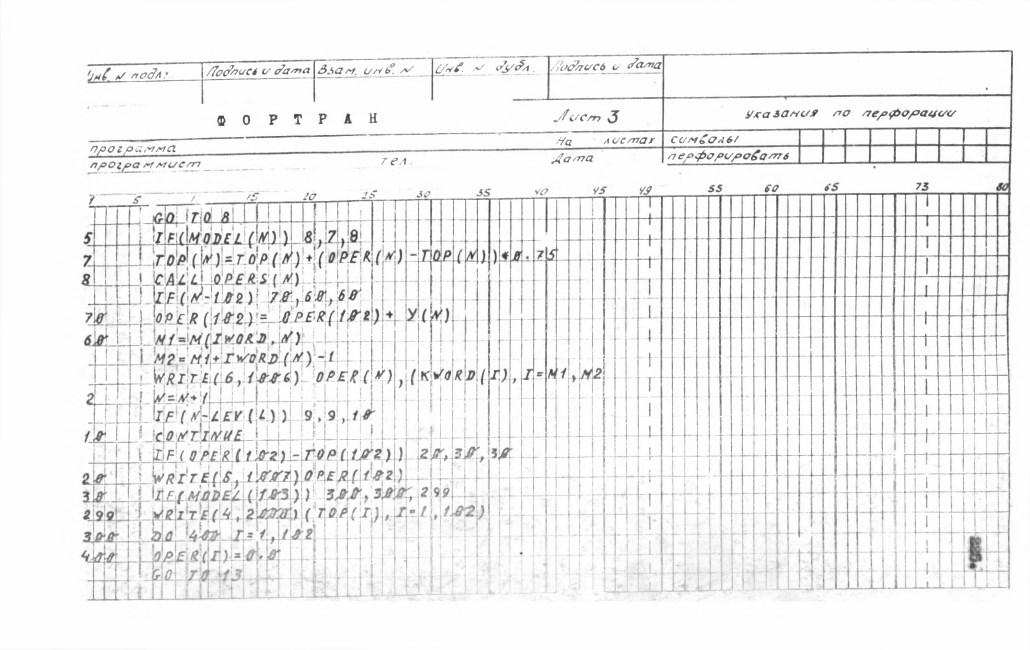 Инв. N подл. Подпись и дата Взам. инв. N Инв. N дубл. Подпись и дата
ФОРТРАН Лист 3 указания по перфорации
программа На листах символы
программист тел. Дата перфорировать
1 5 1 15 20 25 30 35 40 45 49 55 60 65 73 80
GO TO 8
5 IF(MODEL(N)) 8,7,8
7 TOP(N)=TOP(N)+(OPER(N)-TOP(N))*0.75
8 CALL OPERS(N)
IF(N-102) 70,60,60
70 OPER(102)= OPER(102)+ Y(N)
60 M1=M(IWORD,N)
M2=M1+IWORD(N)-1
WRITE(6,1006) OPER(N),(KWORD(I),I=M1,M2
2 N=N+1
IF(N-LEV(L)) 9,9,10
10 CONTINUE
IF(OPER(102)-TOP(102)) 20,30,30
20 WRITE(5,1007)OPER(102)
30 IF(MODEL(103)) 300,300,299
299 WRITE(4,2000)(TOP(I),I=1,102)
300 DO 400 I=1,102
400 OPER(I)=0.0
GO TO 13